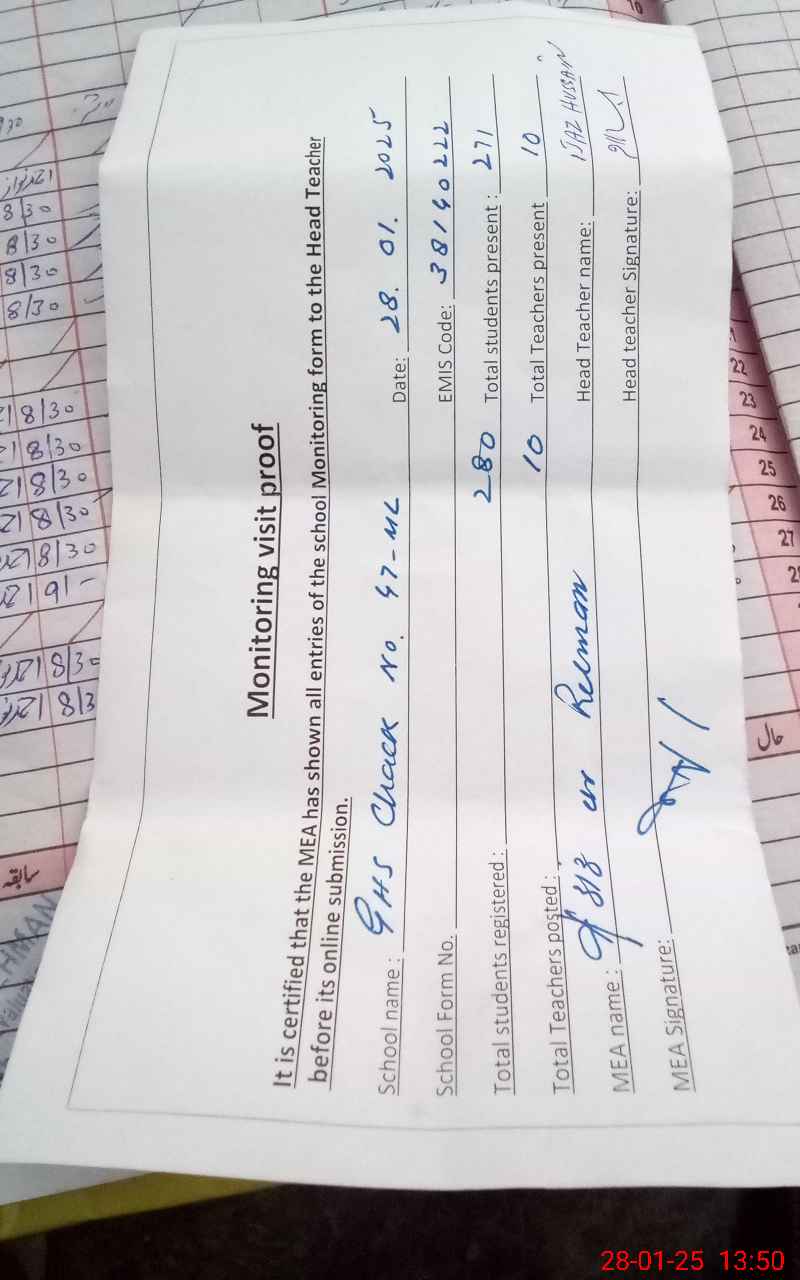 Monitoring visit proof
It is certified that the MEA has shown all entries of the school Monitoring form to the Head Teacher
before its online submission.
School name : GHS Chack No. 47-ML Date: 28. 01. 2025
School Form No. EMIS Code: 38140222
Total students registered : 280 Total students present : 271
Total Teachers posted : 10 Total Teachers present 10
MEA name : ur Rehman Head Teacher name: IJAZ HUSSAIN
MEA Signature: Head teacher Signature:
8/30
8/30
8/30
8/30
8/30
8/30
8/30
8/30
8/30
9/-
8/30
8/3
سابقہ
HMAN
10
22
23
24
25
26
27
حال
28-01-25 13:50